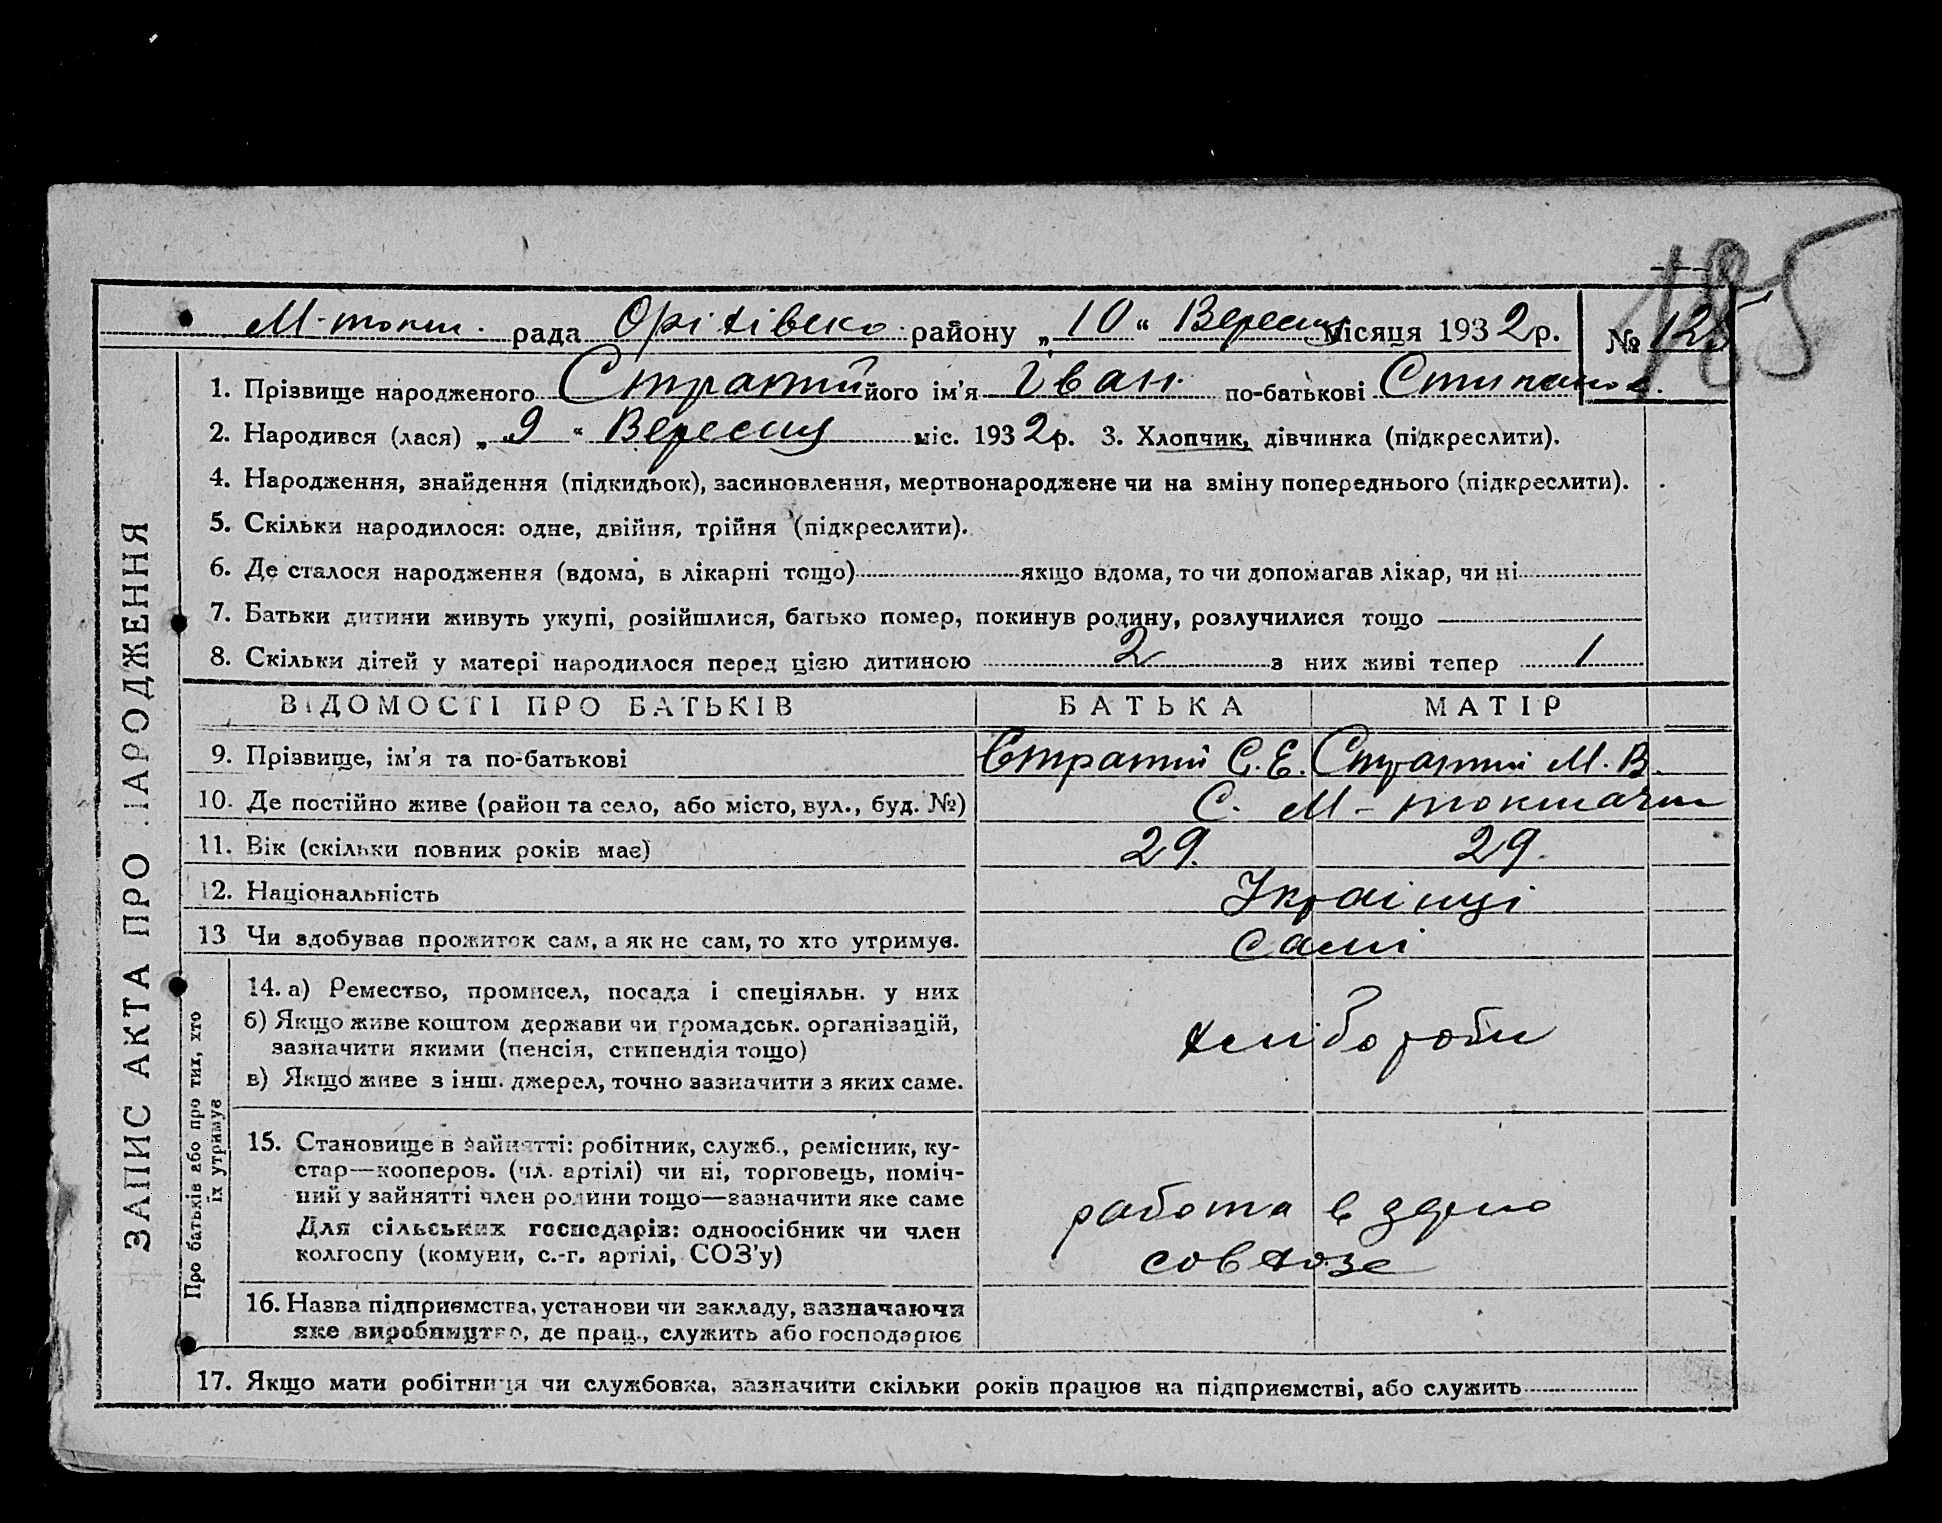 185
М-токм. рада Оріхівско району „10“ Вересня місяця 1932р. № 125
1. Прізвище народженого Стратий його ім'я Іван по-батькові Степанов.
2. Народився (лася) „9“ Вересня міс. 1932р. 3. Хлопчик, дівчинка (підкреслити).
4. Народження, знайдення (підкидьок), засиновлення, мертвонароджене чи на зміну попереднього (підкреслити).
5. Скільки народилося: одне, двійня, трійня (підкреслити).
6. Де сталося народження (вдома, в лікарні тощо) якщо вдома, то чи допомагав лікар, чи ні
7. Батьки дитини живуть укупі, розійшлися, батько помер, покинув родину, розлучилися тощо
8. Скільки дітей у матері народилося перед цією дитиною 2 з них живі тепер 1
ЗАПИС АКТА ПРО НАРОДЖЕННЯ
ВІДОМОСТІ ПРО БАТЬКІВ БАТЬКА МАТІР
9. Прізвище, ім'я та по-батькові Стратий С. Е. Стратий М. В.
10. Де постійно живе (район та село, або місто, вул., буд. №) С. М-токмачка
11. Вік (скільки повних років має) 29. 29.
12. Національність Українці
13 Чи здобував прожиток сам, а як не сам, то хто утримув. Самі
Про батьків або про тих, хто
їх утримує
14. а) Ремество, промисел, посада і спеціяльн. у них
б) Якщо живе коштом держави чи громадськ. організацій,
зазначити якими (пенсія, стипендія тощо)
в) Якщо живе з інш. джерел, точно зазначити з яких саме.
хлібороби
15. Становище в зайнятті: робітник, служб., ремісник, ку-
стар—кооперов. (чл. артілі) чи ні, торговець, поміч-
ний у зайнятті член родини тощо—зазначити яке саме
Для сільських господарів: одноосібник чи член
колгоспу (комуни, с.-г. артілі, СОЗ'у)
работа в зерно
совхозе
16. Назва підприємства, установи чи закладу, зазначаючи
яке виробництво, де прац., служить або господарює
17. Якщо мати робітниця чи службовка, зазначити скільки років працює на підприємстві, або служить